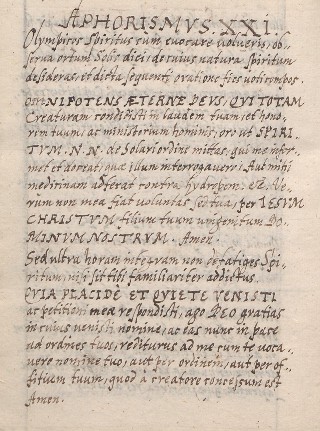 APHORISMVS. XXI.
Olympicos Spiritus cum evocare volueris, ob-
serva ortum Solis diei, de cuius natura Spiritum
desideras, et dicta sequenti oratione fies voti compos.
OMNIPOTENS ÆTERNÆ DEVS, QVI TOTAM
Creaturam condidisti in laudem tuam, et hono-
rem tuum, ac ministerium hominis; oro ut SPIRI-
TVM. N. N. de Solari ordine mittas, qui me infor-
met et doceat, quæ illum interrogavero; Aut mihi
medicinam adferat contra hydropem: etc. Ve-
rum non mea fiat voluntas, sed tua, per IESVM
CHRISTVM filium tuum unigenitum DO-
MINVM NOSTRVM. Amen.
Sed ultra horam integram non defatiges Spi-
ritum, nisi sit tibi familiariter addictus.
QVIA PLACIDE ET QVIETE VENISTI
ac petitioni mea respondisti, ago DEO gratias
in cuius venisti nomine, ac eas nunc in pace
ad ordines tuos, rediturus ad me cum te voca-
vero nomine tuo, aut per ordinem, aut per of-
fitium tuum, quod à creatore concessum est
Amen.